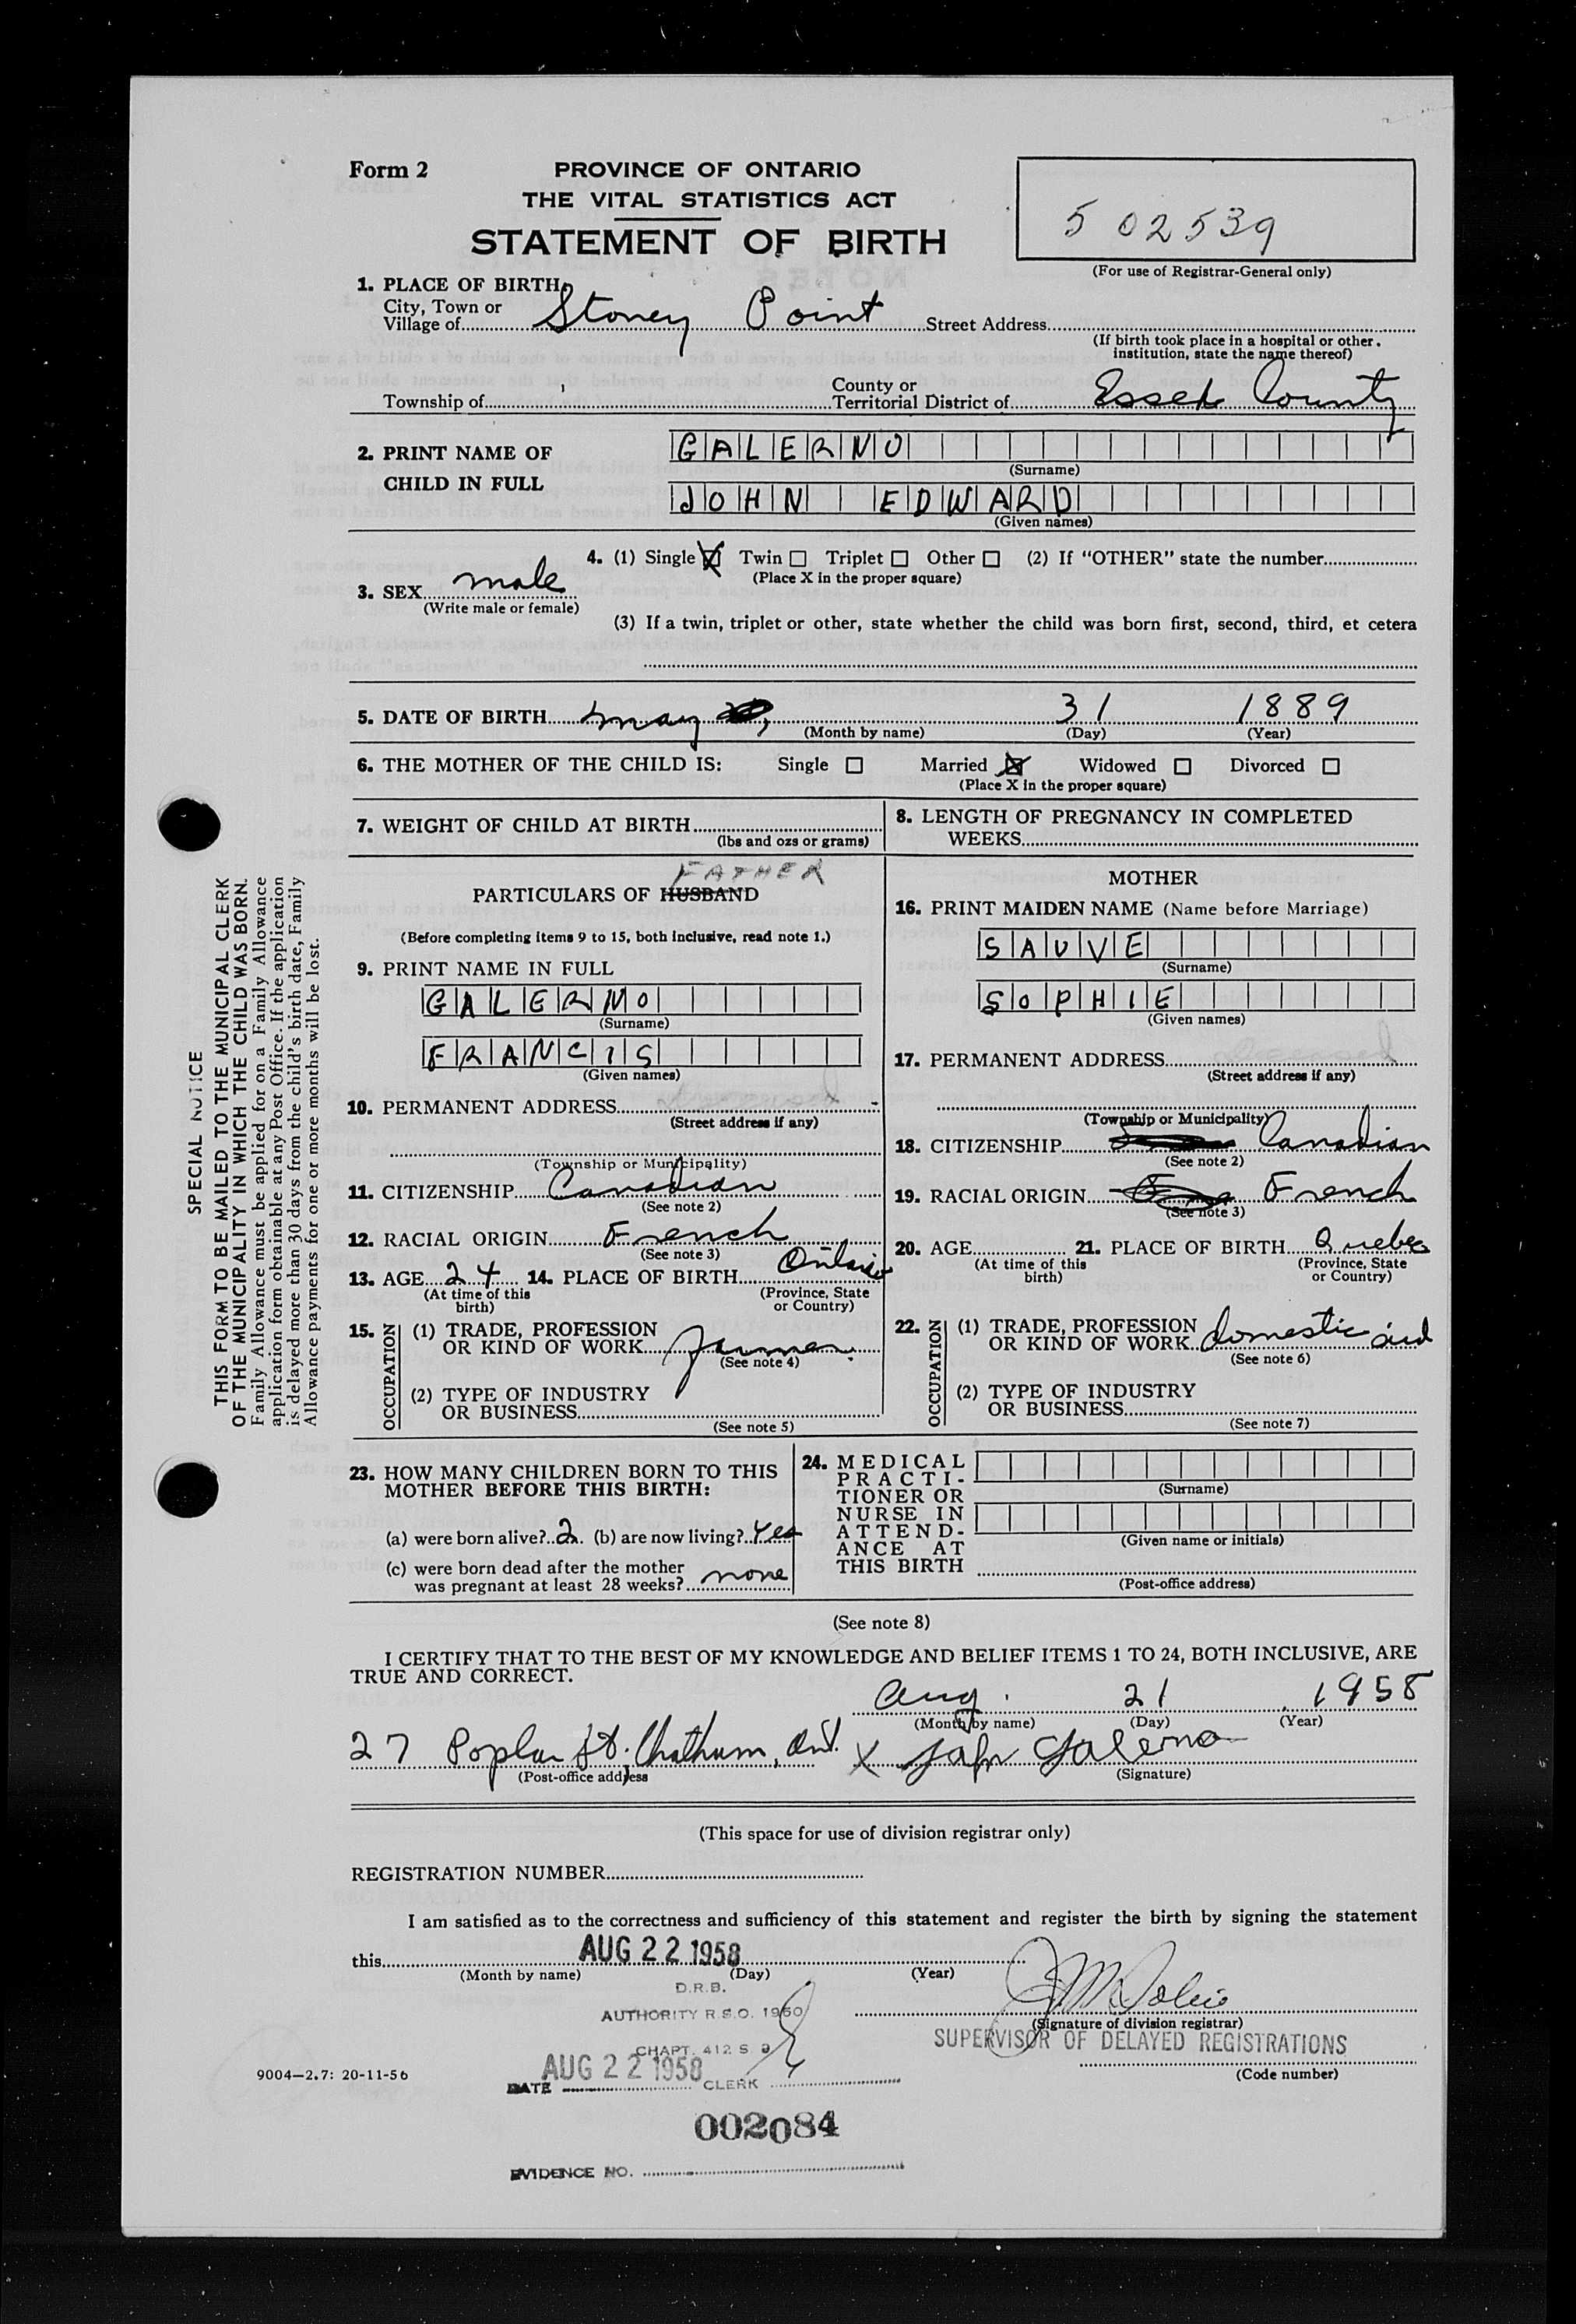 Form 2
PROVINCE OF ONTARIO
THE VITAL STATISTICS ACT
STATEMENT OF BIRTH
5 02539
(For use of Registrar-General only)
1. PLACE OF BIRTH
City, Town or
Village of Stoney Point Street Address
(If birth took place in a hospital or other
institution, state the name thereof)
Township of County or
Territorial District of Essex County
2. PRINT NAME OF
CHILD IN FULL
GALERNO
(Surname)
JOHN EDWARD
(Given names)
3. SEX male
(Write male or female)
4. (1) Single X Twin Triplet Other (2) If "OTHER" state the number
(Place X in the proper square)
(3) If a twin, triplet or other, state whether the child was born first, second, third, et cetera
5. DATE OF BIRTH May 31 1889
(Month by name) (Day) (Year)
6. THE MOTHER OF THE CHILD IS: Single Married X Widowed Divorced
(Place X in the proper square)
7. WEIGHT OF CHILD AT BIRTH
(lbs and ozs or grams)
8. LENGTH OF PREGNANCY IN COMPLETED
WEEKS
FATHER
PARTICULARS OF HUSBAND
(Before completing items 9 to 15, both inclusive, read note 1.)
9. PRINT NAME IN FULL
GALERNO
(Surname)
FRANCIS
(Given names)
10. PERMANENT ADDRESS deceased
(Street address if any)
(Township or Municipality)
11. CITIZENSHIP Canadian
(See note 2)
12. RACIAL ORIGIN French
(See note 3)
13. AGE 24 14. PLACE OF BIRTH Ontario
(At time of this
birth)
(Province, State
or Country)
15. OCCUPATION
(1) TRADE, PROFESSION
OR KIND OF WORK farmer
(See note 4)
(2) TYPE OF INDUSTRY
OR BUSINESS
(See note 5)
MOTHER
16. PRINT MAIDEN NAME (Name before Marriage)
SAUVE
(Surname)
SOPHIE
(Given names)
17. PERMANENT ADDRESS deceased
(Street address if any)
(Township or Municipality)
18. CITIZENSHIP Canadian
(See note 2)
19. RACIAL ORIGIN French
(See note 3)
20. AGE 21. PLACE OF BIRTH Quebec
(At time of this
birth)
(Province, State
or Country)
22. OCCUPATION
(1) TRADE, PROFESSION
OR KIND OF WORK domestic aid
(See note 6)
(2) TYPE OF INDUSTRY
OR BUSINESS
(See note 7)
23. HOW MANY CHILDREN BORN TO THIS
MOTHER BEFORE THIS BIRTH:
(a) were born alive? 2 (b) are now living? Yes
(c) were born dead after the mother
was pregnant at least 28 weeks? none
24. MEDICAL
PRACTI-
TIONER OR
NURSE IN
ATTEND-
ANCE AT
THIS BIRTH
(Surname)
(Given name or initials)
(Post-office address)
(See note 8)
I CERTIFY THAT TO THE BEST OF MY KNOWLEDGE AND BELIEF ITEMS 1 TO 24, BOTH INCLUSIVE, ARE
TRUE AND CORRECT.
Aug. 21 1958
(Month by name) (Day) (Year)
27 Poplar St. Chatham, Ont. X John Galerno
(Post-office address) (Signature)
(This space for use of division registrar only)
REGISTRATION NUMBER
I am satisfied as to the correctness and sufficiency of this statement and register the birth by signing the statement
this AUG 22 1958
(Month by name) (Day) (Year)
(Signature of division registrar)
SUPERVISOR OF DELAYED REGISTRATIONS
(Code number)
D.R.B.
AUTHORITY R.S.O. 1950
CHAPT. 412 S 9
DATE AUG 22 1958 CLERK
002084
EVIDENCE NO.
9004—2.7: 20-11-56
SPECIAL NOTICE
THIS FORM TO BE MAILED TO THE MUNICIPAL CLERK
OF THE MUNICIPALITY IN WHICH THE CHILD WAS BORN.
Family Allowance must be applied for on a Family Allowance
application form obtainable at any Post Office. If the application
is delayed more than 30 days from the child's birth date, Family
Allowance payments for one or more months will be lost.